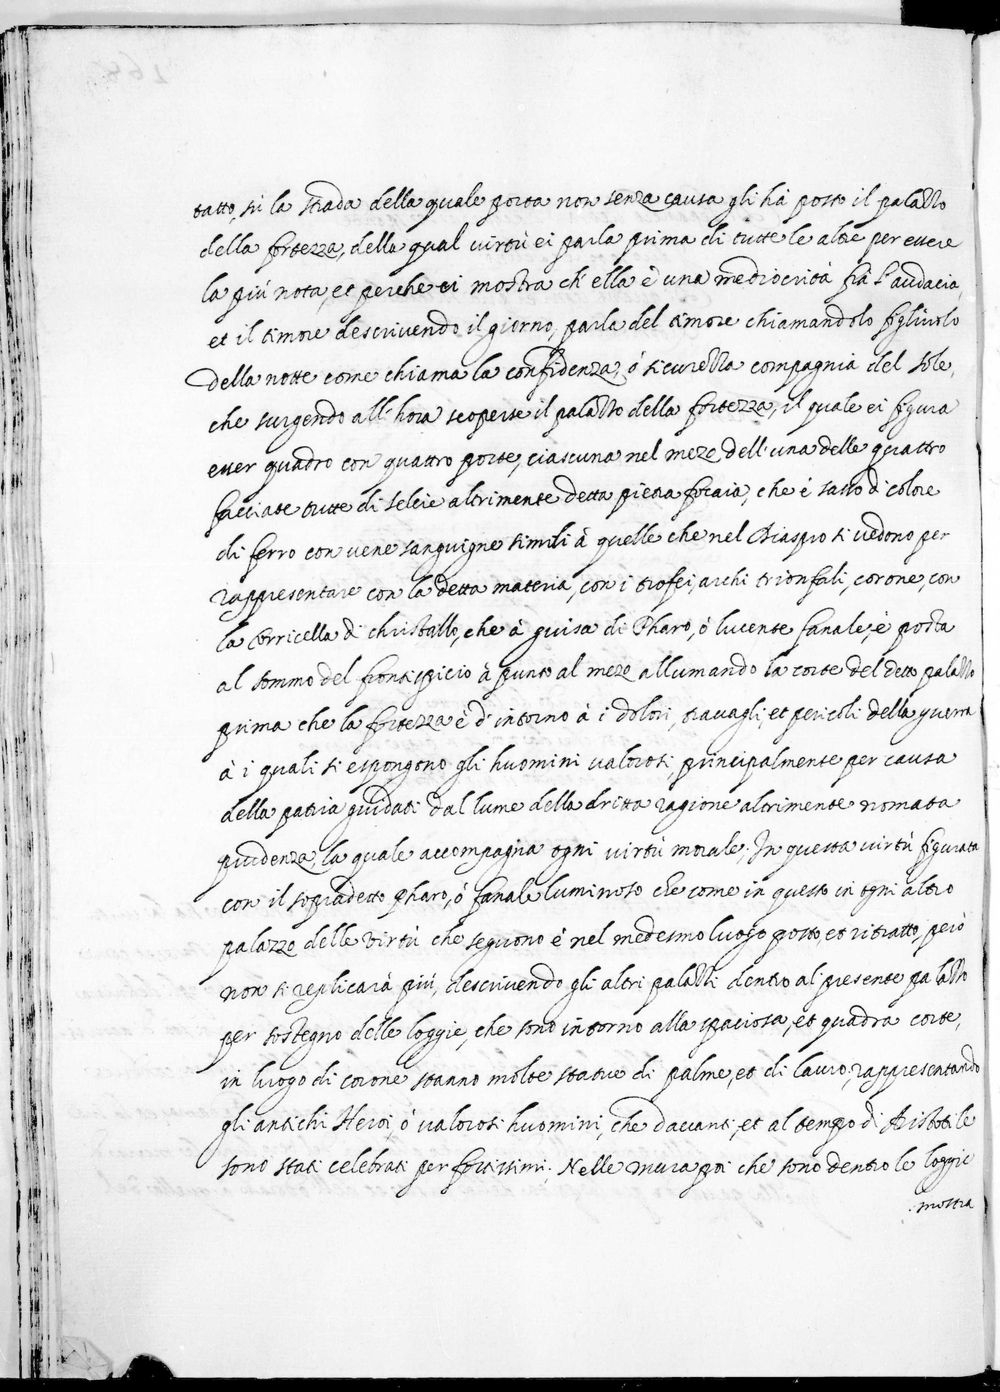 tatto, sù la strada della quale porta non senza causa gli há posto il palazzo
della fortezza, della qual virtù ei parla prima di tutte le altre per essere
la più nota, et perche ei mostra ch' ella è una mediocrità frà l'audacia,
et il timore descrivendo il giorno, parla del timore chiamandolo figliuolo
della notte come chiama la confidenza, ó sicurezza compagnia del sole,
che surgendo all'hora scoperse il palazzo della fortezza, il quale ei figura
esser quadro con quattro porte, ciascuna nel mezo dell'una delle quattro
facciate tutte di selcie altrimente detta pietra focaia, che é sasso di colore
di ferro con vene sanguigne simili à quelle che nel Diaspro si vedono per
rappresentare con la detta materia, con i trofei, archi trionfali, corone, con
la torricella di christallo, che à guisa di Pharo, ó lucente fanale, è posta
al sommo del frontispicio à punto al mezo allumando la corte del detto palazzo
prima che la fortezza è d'intorno à i dolori, travagli, et pericoli della guerra
à i quali si espongono gli huomini valorosi, principalmente per causa
della patria guidati dal lume della dritta ragione altrimente nomata
prudenza, la quale accompagna ogni virtù morale; In questa virtù figurata
con il sopradetto Pharo, ó fanale luminoso che come in questo in ogni altro
palazzo delle virtù che seguono é nel medesmo luogo posto, et ritratto, però
non si replicarà più, descrivendo gli altri palazzi dentro al presente palazzo
per sostegno delle loggie, che sono intorno alla spaciosa, et quadra corte,
in luogo di corone stanno molte statue di palme, et di lauro, rappresentando
gli antichi Heroi, ó valorosi huomini, che davanti, et al tempo di Aristotile
sono stati celebrati per fortissimi; Nelle mura poi che sono dentro le loggie
mostra